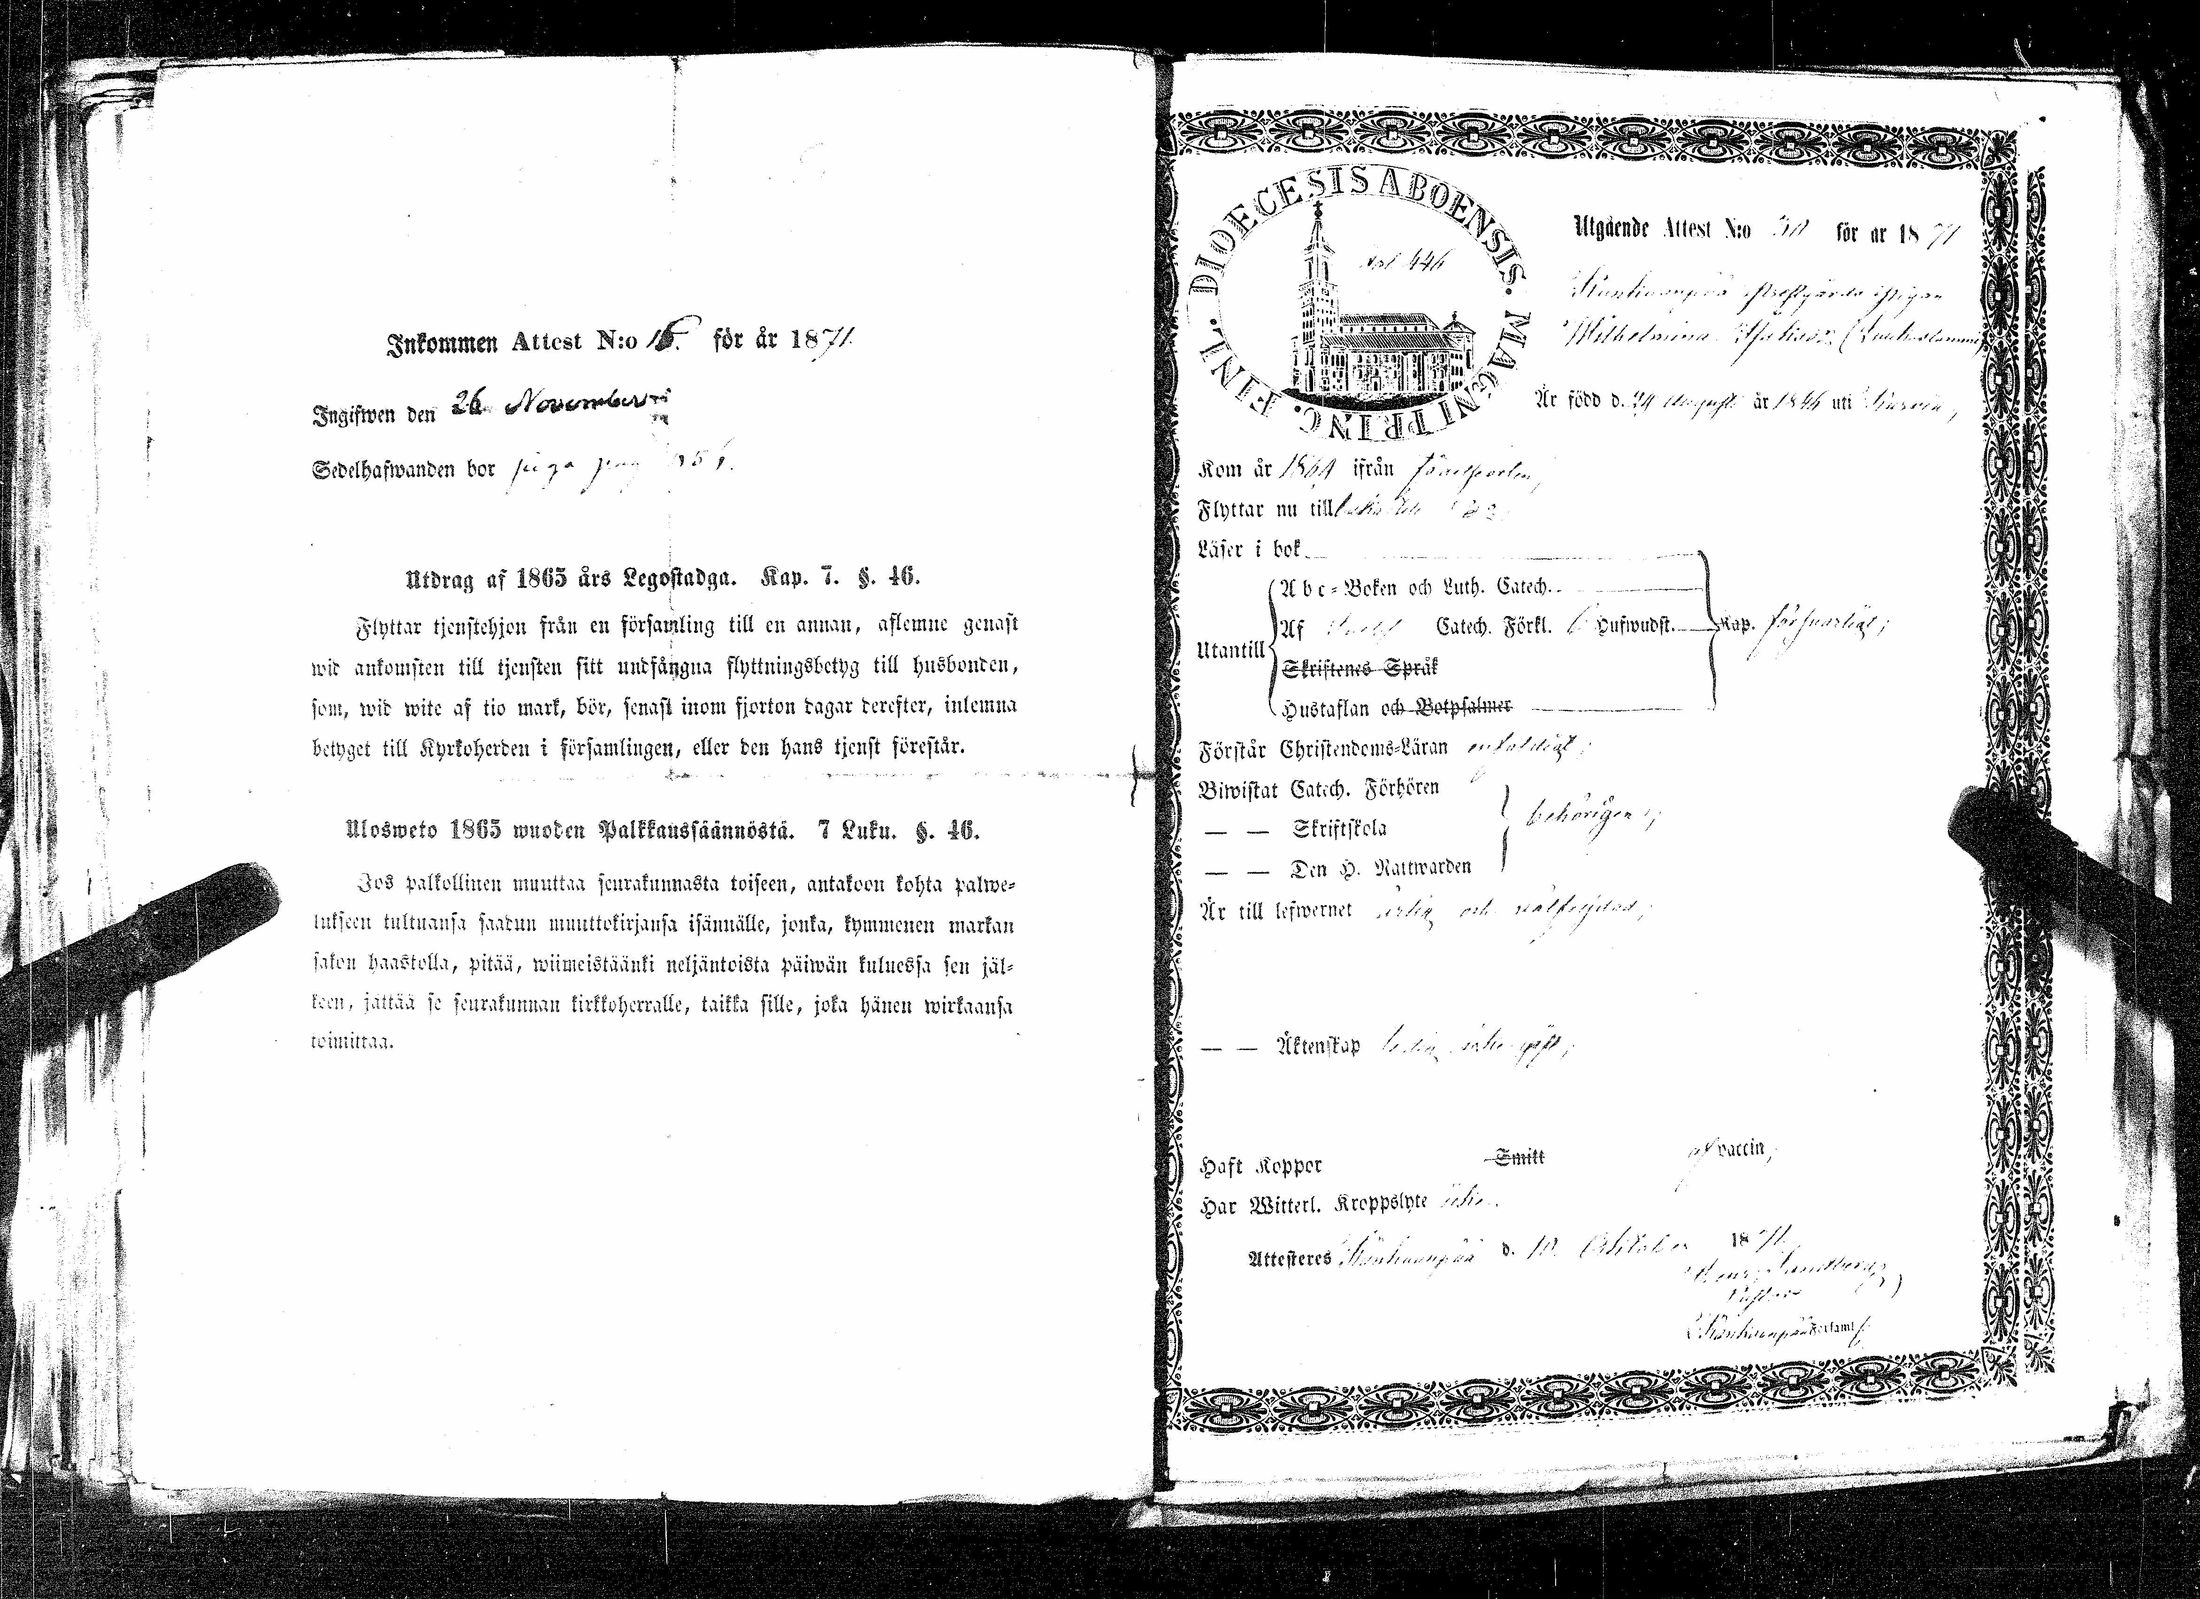 Inkommen Attest N:o 16. för år 1871.
Ingifwen den 26 November
Sedelhafwanden bor
Utdrag af 1865 års Legostadga. Kap. 7. §. 46.
Flyttar tjenstehjon från en församling till en annan, aflemne genast
wid ankomsten till tjensten sitt undfångna flyttningsbetyg till husbonden,
som, wid wite af tio mark, bör, senast inom fjorton dagar derefter, inlemna
betyget till Kyrkoherden i församlingen, eller den hans tjenst förestår.
Ulosweto 1865 wuoden Palkkaussäännöstä. 7 Luku. §. 46.
Jos palkollinen muuttaa seurakunnasta toiseen, antakoon kohta palwe-
lukseen tultuansa saadun muuttokirjansa isännälle, jonka, kymmenen markan
sakon haastolla, pitää, wiimeistäänki neljäntoista päiwän kuluessa sen jäl-
keen, jättää se seurakunnan kirkkoherralle, taikka sille, joka hänen wirkaansa
toimittaa.
DIOECESIS ABOENSIS. MAGNI PRINC. FINL.
446
Utgående Attest N:o för år 1871
Kankaanpää
Wilhelmina
Är född d. 24 Augusti år 1846 uti
Kom år 1864 ifrån
Flyttar nu till
Läser i bok
Abc-Boken och Luth. Catech.
Utantill Af Catech. Förkl. Hufwudst. Kap. försvarligt;
Skriftenes Språk
Hustaflan och Botpsalmer
Förstår Christendoms-Läran enfaldigt;
Biwistat Catech. Förhören
— — Skriftskola behörigen;
— — Den H. Nattwarden
Är till lefwernet ärlig och välfrejdad;
— — Äktenskap ledig
Haft Koppor Smitt af vaccin;
Har Witterl. Kroppslyte icke.
Attesteres Kankaanpää d. 10 Oktober 1871.
Sandberg
Pastor
Kankaanpää Församl.